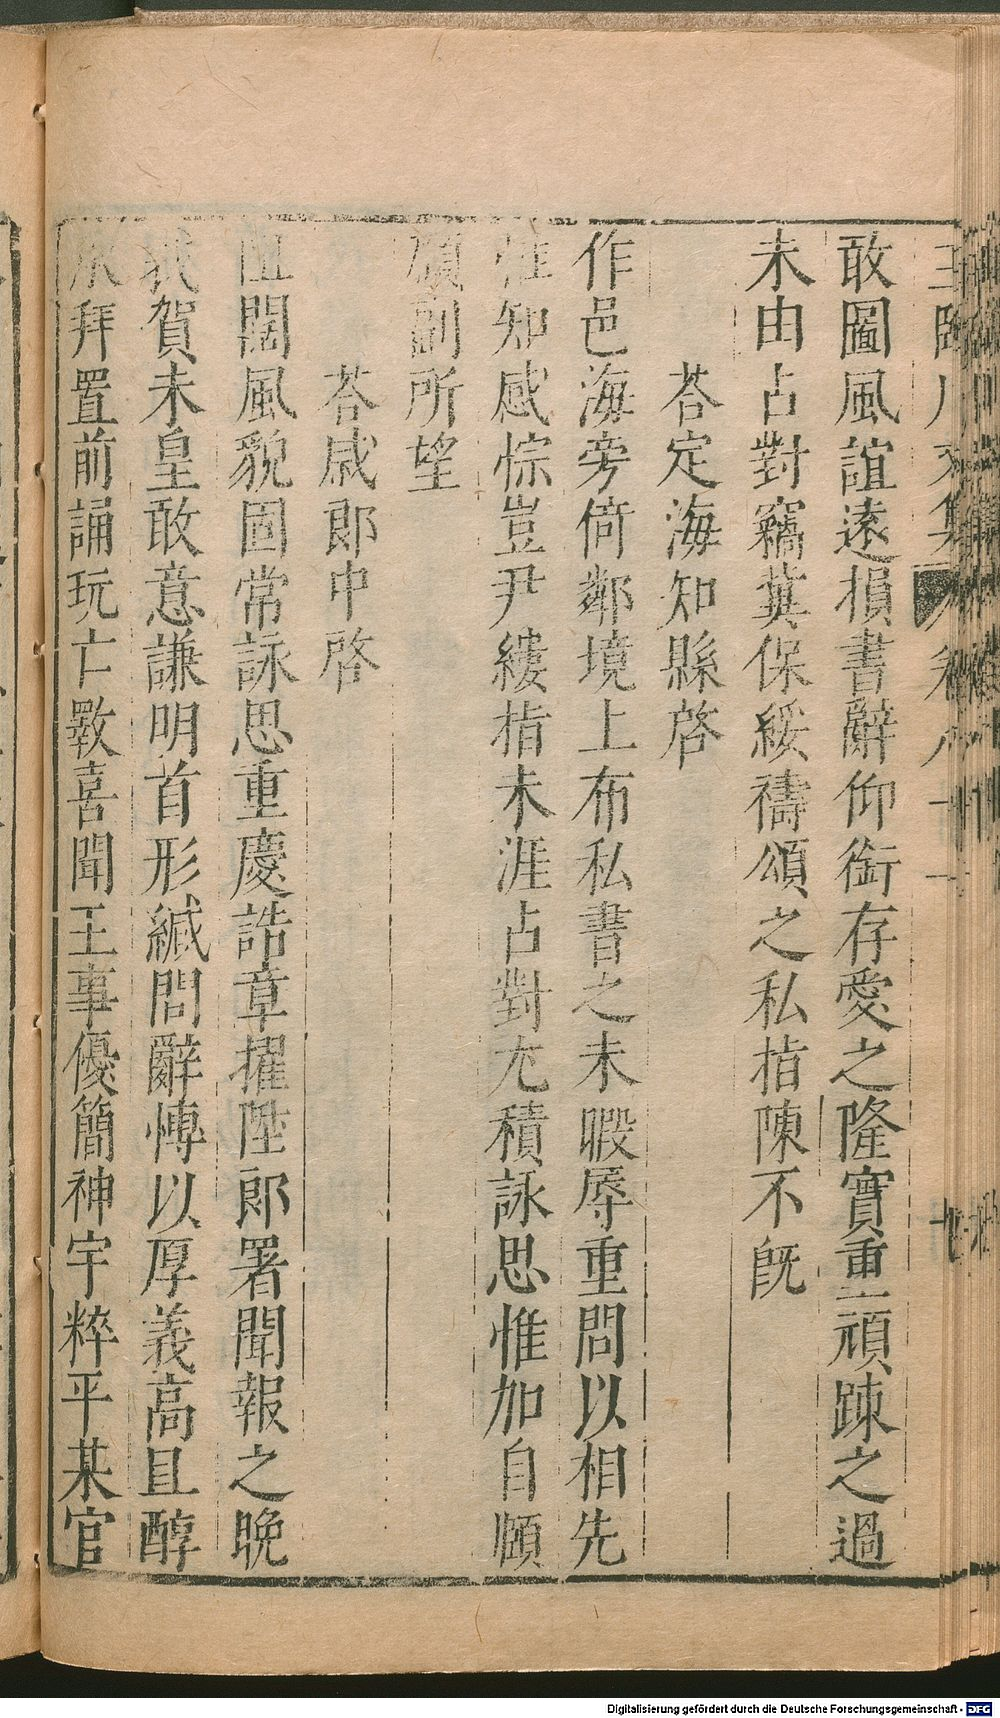 敢圖風誼遠損書辭仰銜存愛之隆實重頑踈之過
未由占對竊冀保綏禱頌之私指陳不旣
荅定海知縣啓
作邑海旁倚鄰境上布私書之未暇辱重問以相先
惟知感悰豈尹縷指未涯占對尤積詠思惟加自頤
頎副所望
荅戚郎中啓
闊風貌固常詠思重慶誥章擢陞郎署聞報之晚
賀未皇敢意謙明首形緘問辭慱以厚義高且醇
拜置前誦玩亡斁喜聞王事優簡神宇粹平某官
Digitalisierung gefördert durch die Deutsche Forschungsgemeinschaft - DFG